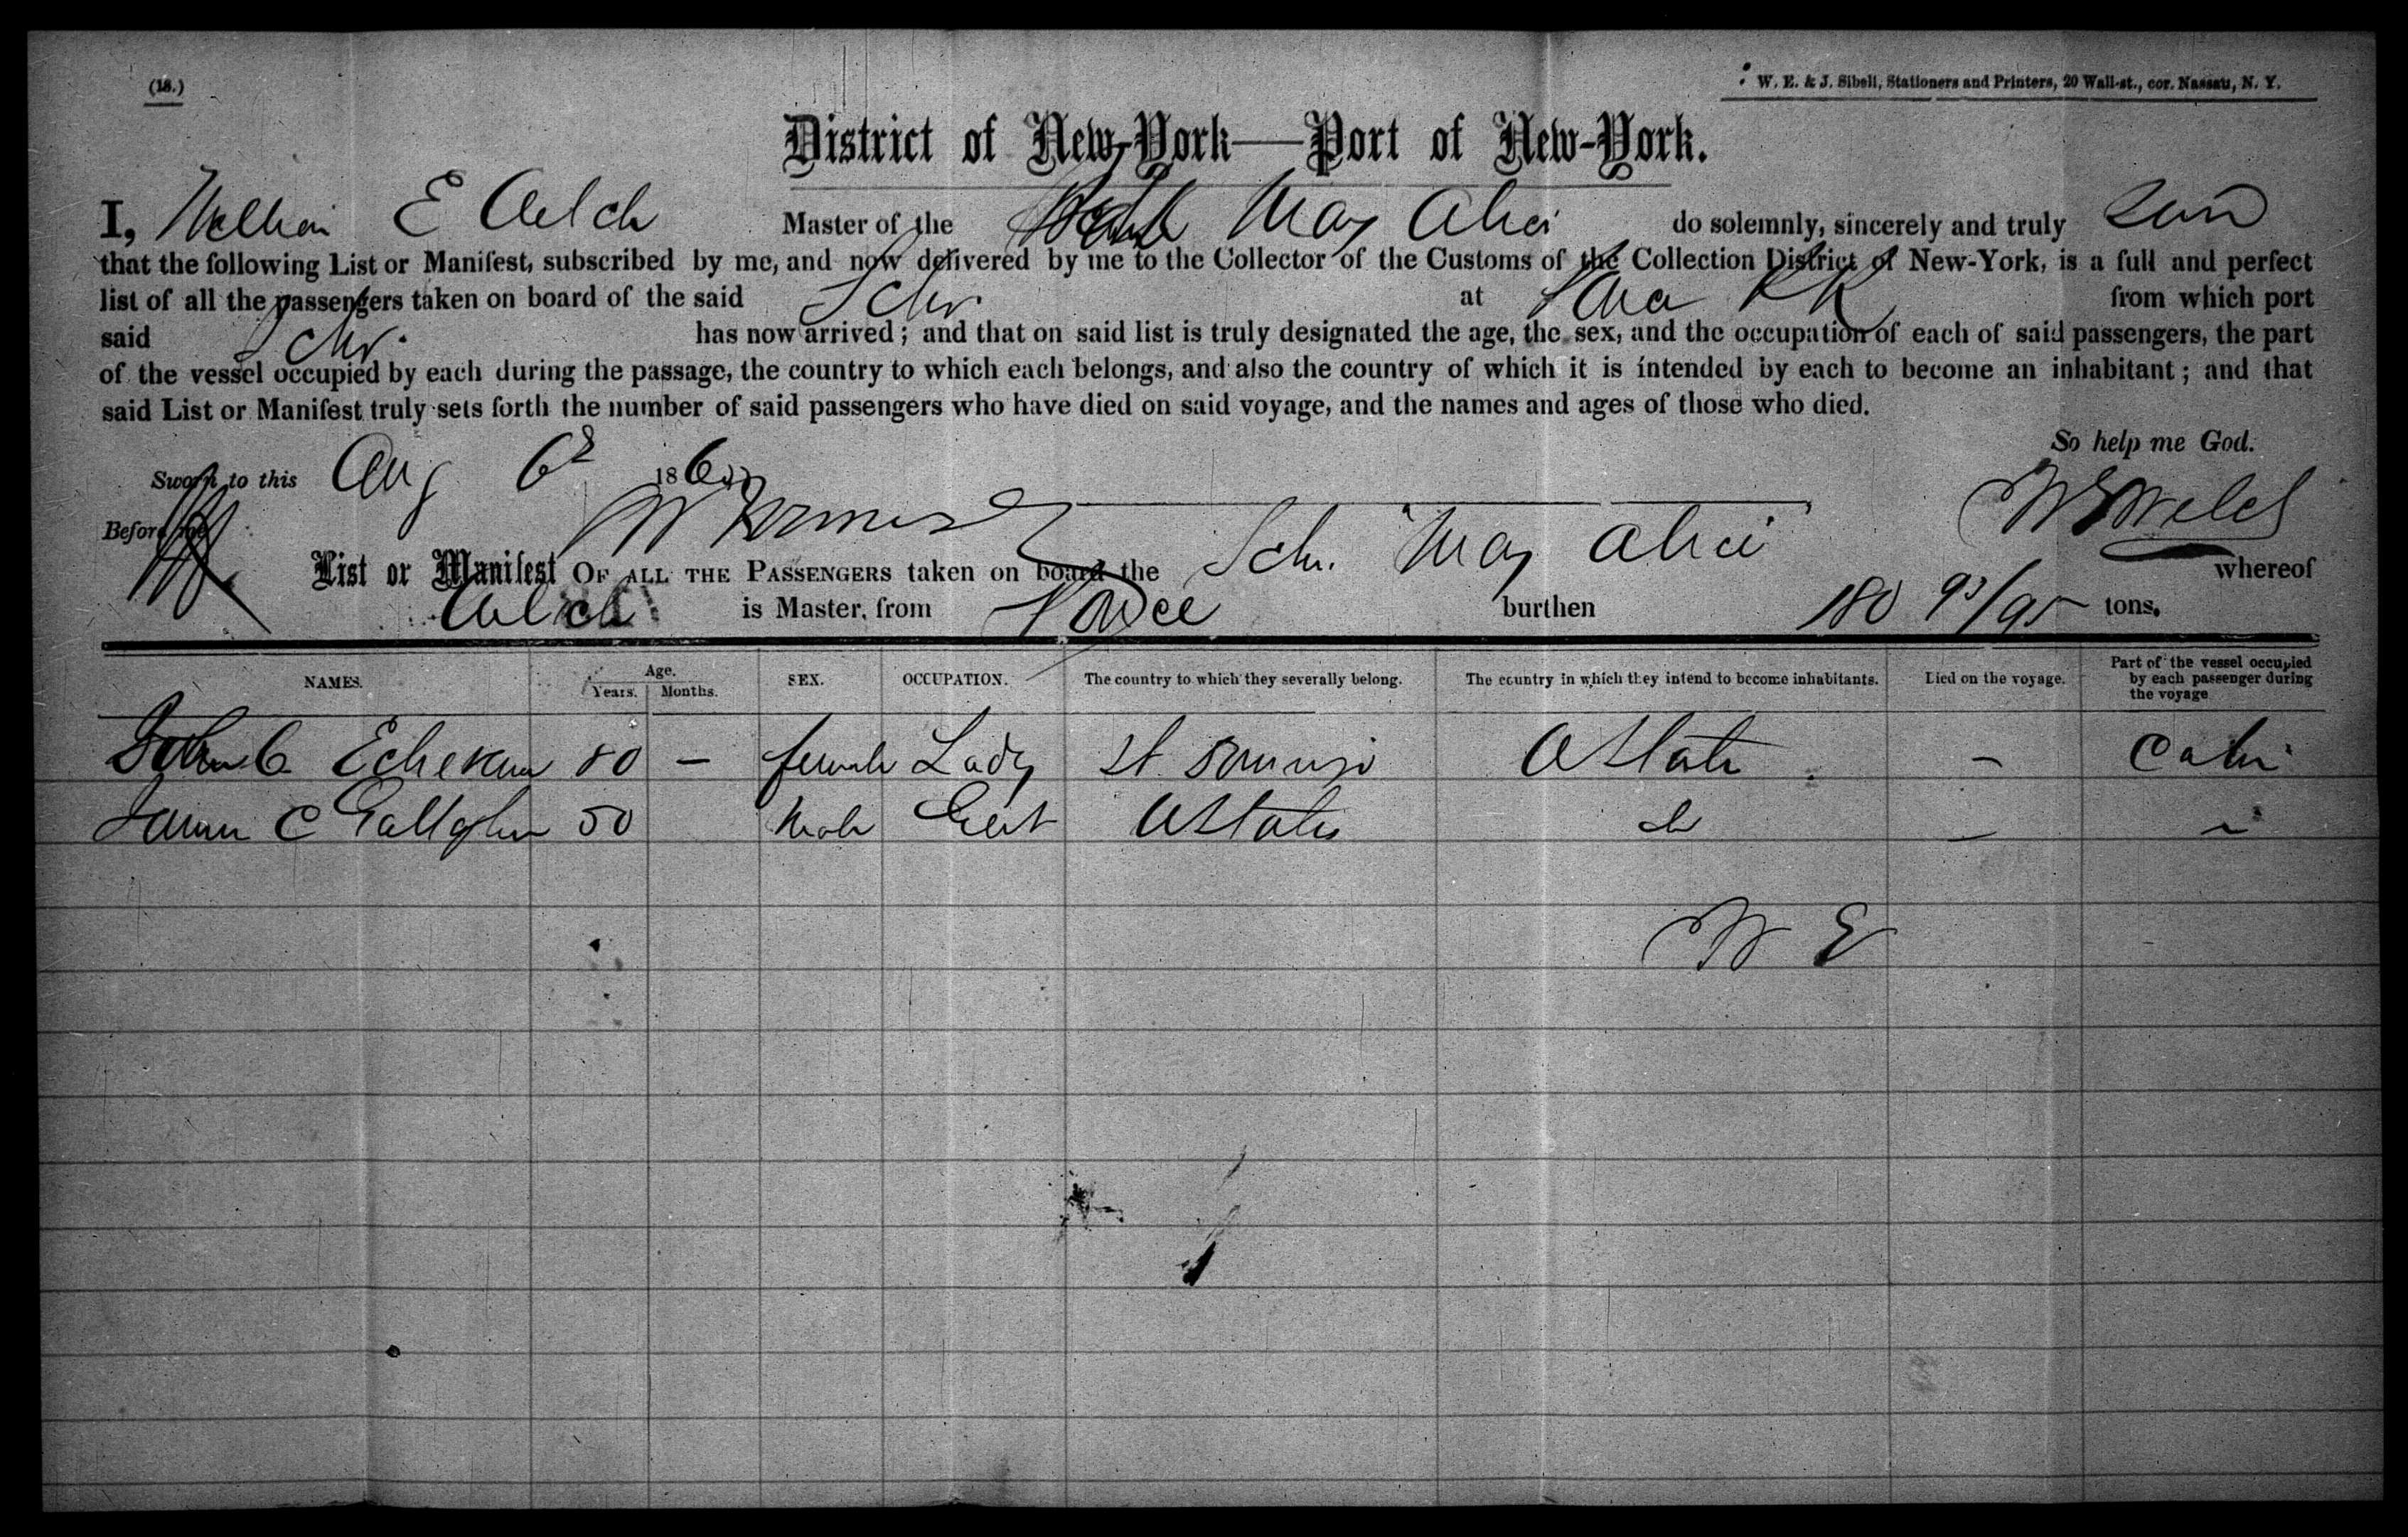 (18.)
W. E. & J. Sibell, Stationers and Printers, 20 Wall-st., cor. Nassau, N. Y.
District of New-York—Port of New-York.
I, William E Welch Master of the May Alice do solemnly, sincerely and truly
that the following List or Manifest, subscribed by me, and now delivered by me to the Collector of the Customs of the Collection District of New-York, is a full and perfect
list of all the passengers taken on board of the said Schr at from which port
said Schr. has now arrived; and that on said list is truly designated the age, the sex, and the occupation of each of said passengers, the part
of the vessel occupied by each during the passage, the country to which each belongs, and also the country of which it is intended by each to become an inhabitant; and that
said List or Manifest truly sets forth the number of said passengers who have died on said voyage, and the names and ages of those who died.
So help me God.
Sworn to this Aug 6 186
W E Welch
Before me
List or Manifest OF ALL THE PASSENGERS taken on board the Schr. May Alice whereof
Welch is Master, from Ponce burthen 180 93/95 tons.
NAMES. Age. Years. Months. SEX. OCCUPATION. The country to which they severally belong. The country in which they intend to become inhabitants. Died on the voyage. Part of the vessel occupied by each passenger during the voyage
80 — female Lady St. Domingo U States — Cabin
James C Gallagher 50 Male Gent U States do — "
W E